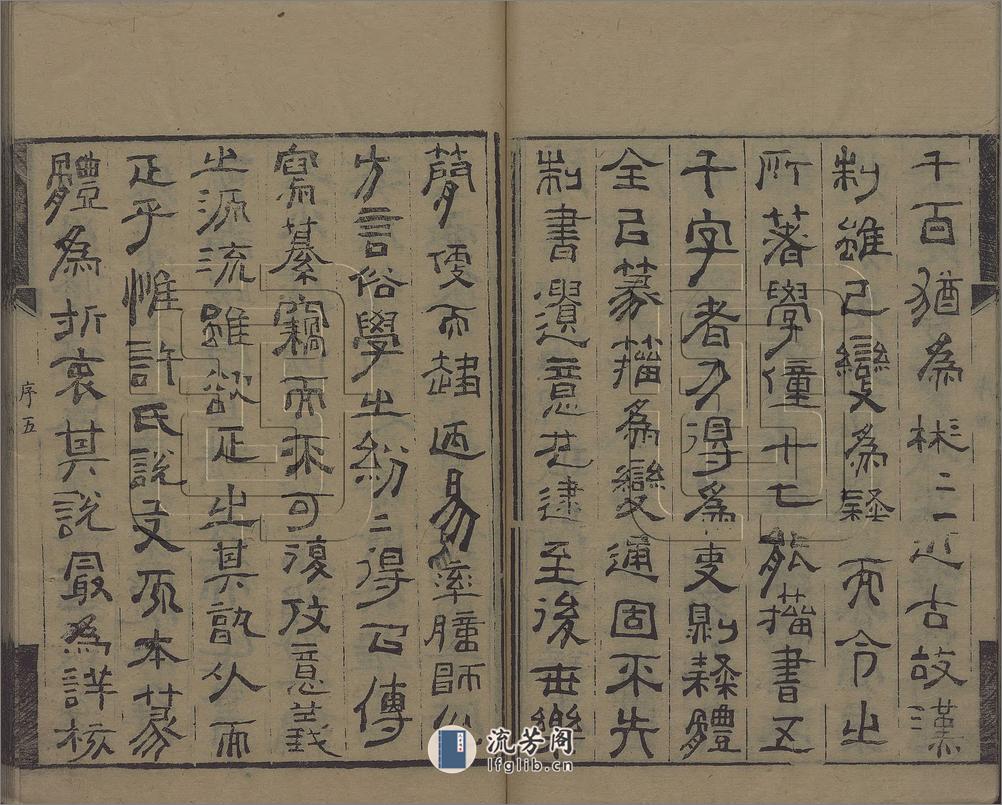 千百猶為彬二近古故漢
制雖已變為隸而令之
所著學僮十七能籀書五
千字者乃得為吏則隸體
全已篆籀為變通固不失
制書遺意逮至後世樂
簡便而趨近易率臆師心
方言俗學之紛二得以傳
寫纂竊而不可復攷意義
之源流雖欲正之其孰从而
正乎惟許氏說文原本篆
體為折衷其說最為詳核
序五
流芳阁
lfglib.cn